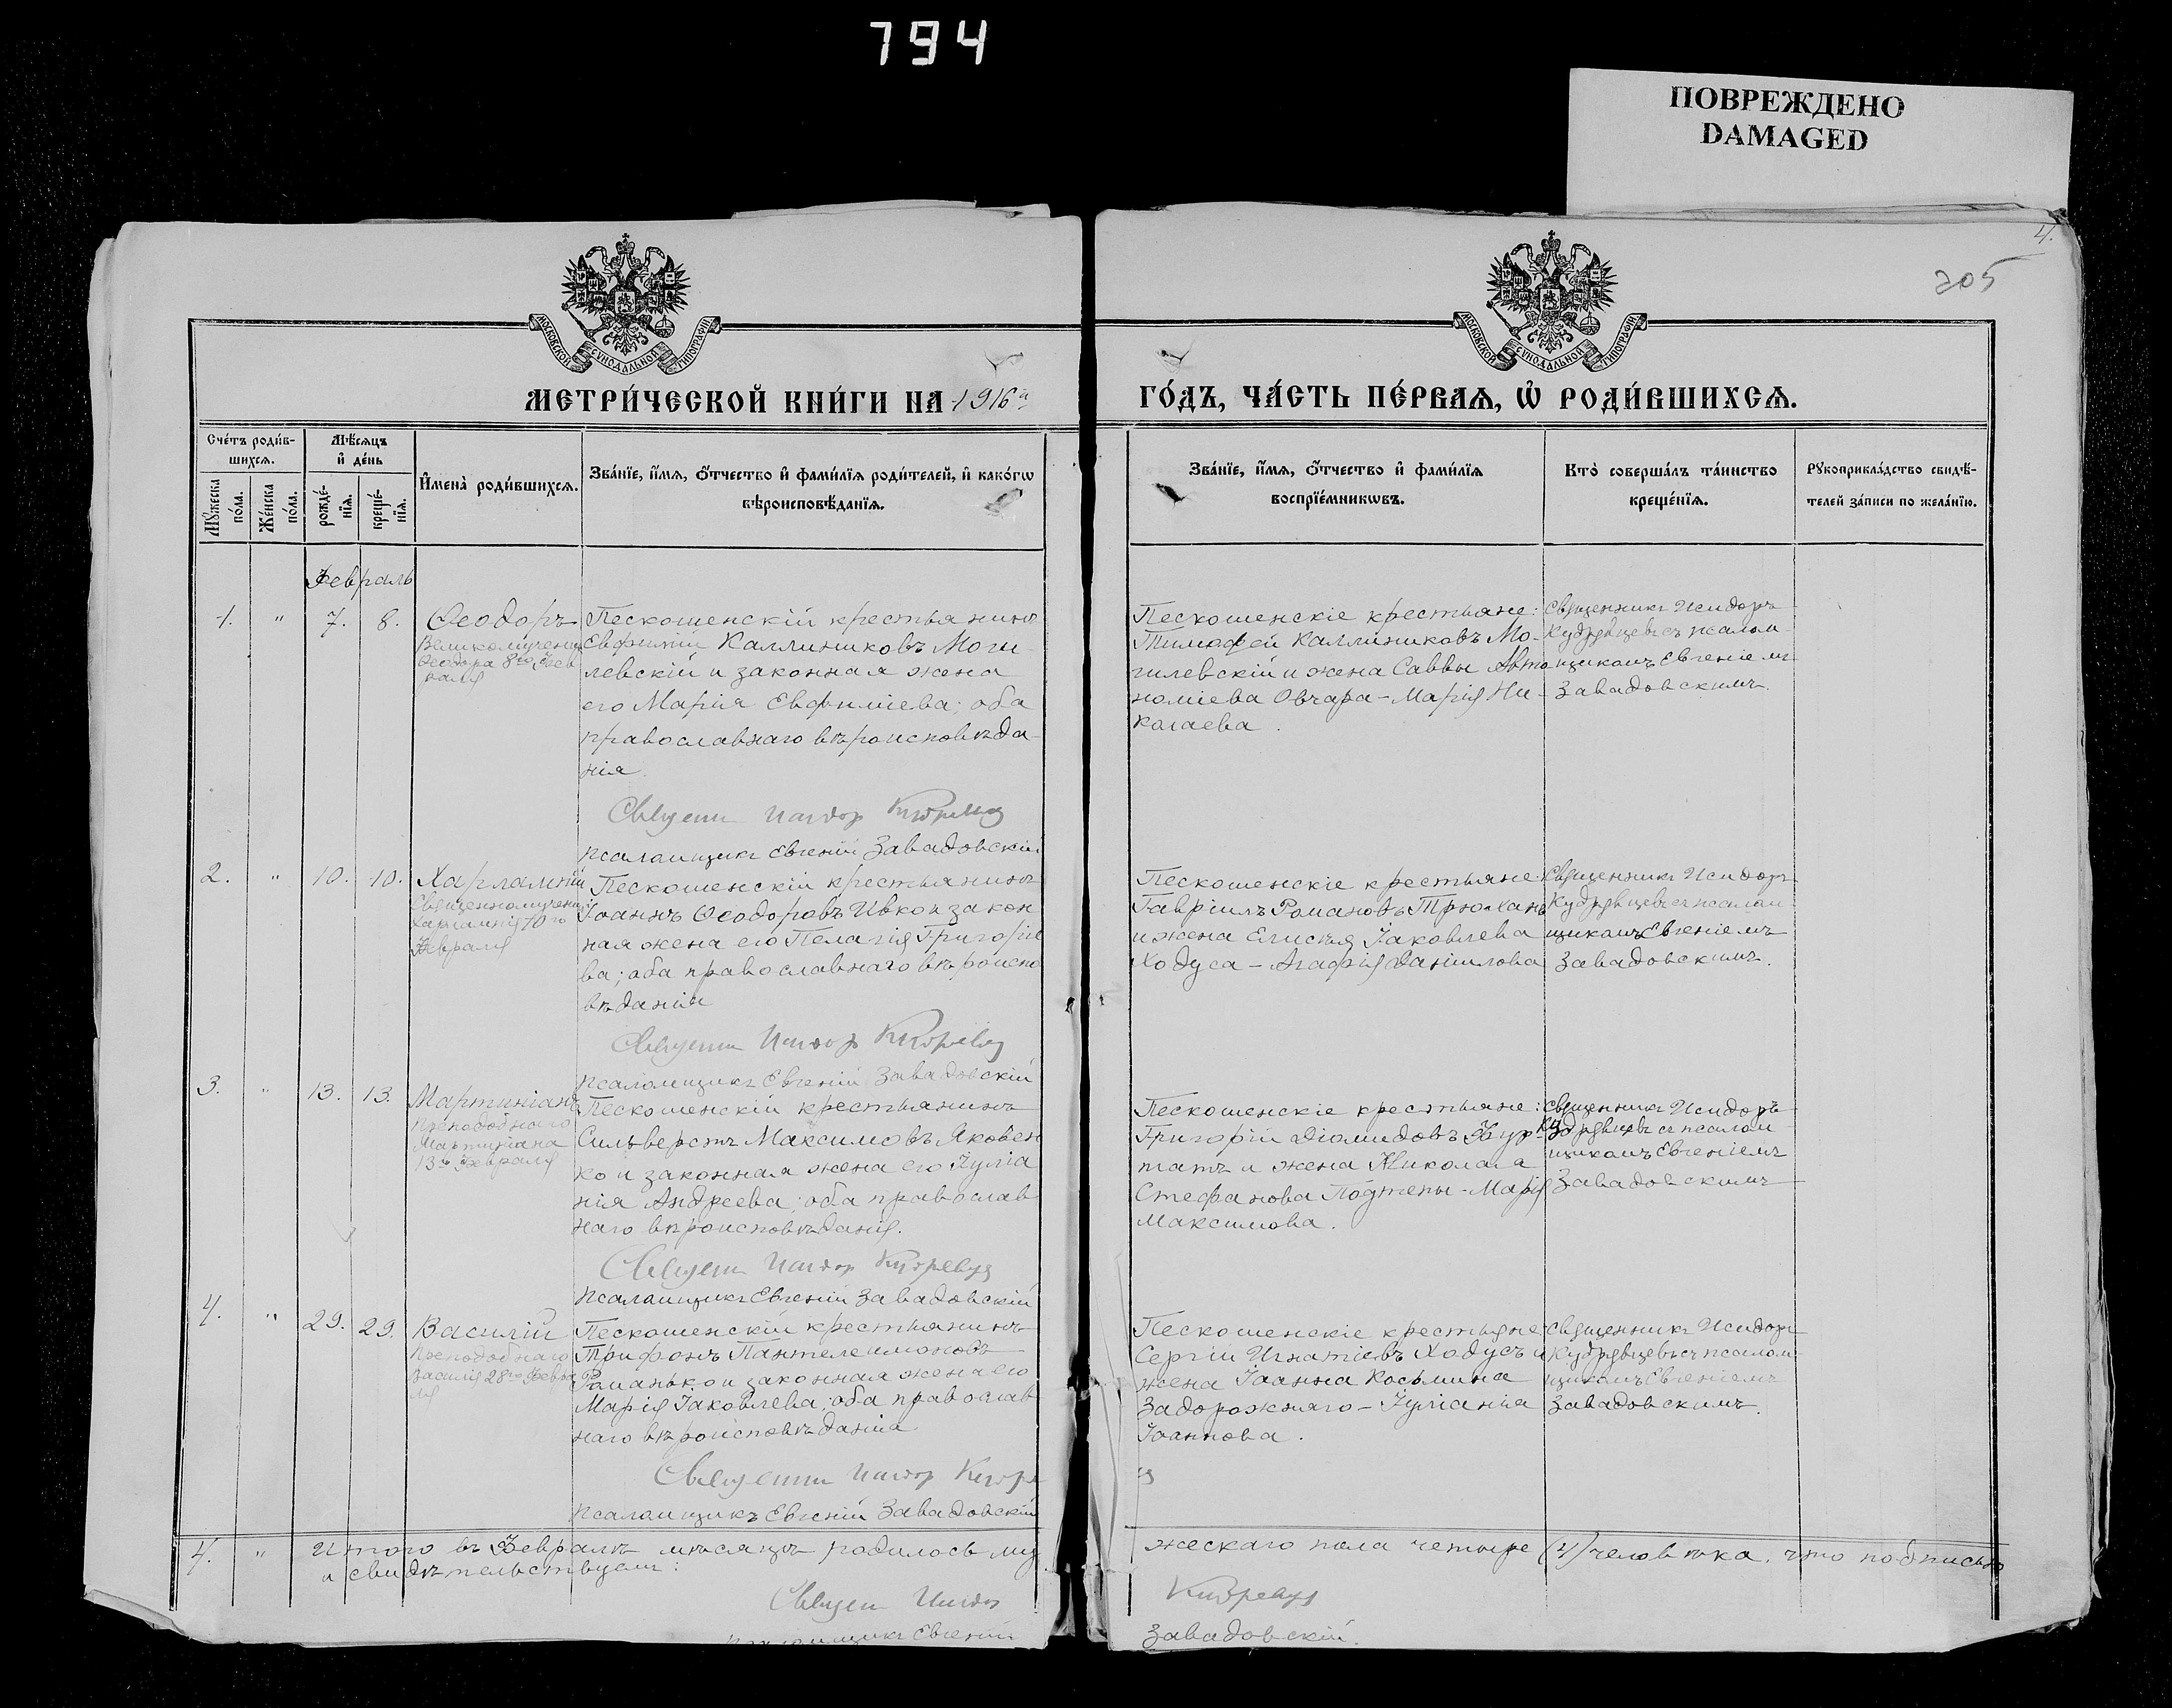 794
ПОВРЕЖДЕНО
DAMAGED
4.
205
МОСКОВСКОЙ СѴНОДАЛЬНОЙ ТИПОГРАФІИ
МОСКОВСКОЙ СѴНОДАЛЬНОЙ ТИПОГРАФІИ
МЕТРИ́ЧЕСКОЙ КНИ́ГИ НА 1916й
ГО́ДЪ, ЧА́СТЬ ПЕ́РВАѦ, Ѡ҆ РОДИ́ВШИХСѦ.
Сче́тъ роди́в-
шихсѧ.
Мꙋ́жеска
по́ла.
Же́нска
по́ла.
Мѣ́сѧцъ
и҆ де́нь
рожде́-
нїѧ.
креще́-
нїѧ.
И҆мена̀ роди́вшихсѧ.
Зва́нїе, и҆́мѧ, ѻ҆́тчество и҆ фами́лїѧ роди́телей, и҆ како́гѡ
вѣроисповѣ́данїѧ.
Зва́нїе, и҆́мѧ, ѻ҆́тчество и҆ фами́лїѧ
воспрїе́мникѡвъ.
Кто̀ соверша́лъ та́инство
креще́нїѧ.
Рꙋкоприкла́дство свидѣ́-
телей за́писи по жела́нїю.
Февраль
1. " 7. 8.
Ѳеодоръ
Великомученика
Ѳеодора 8го Фев
раля
Пескошенскій крестьянинъ
Евфимій Каллиниковъ Моги-
левскій и законная жена
его Марія Евфиміева; оба
православнаго вѣроисповѣда-
нія
Псаломщикъ Евгеній Завадовскій
Пескошенскіе крестьяне:
Тимофей Каллиниковъ Мо-
гилевскій и жена Саввы Авто
номіева Овчара - Марія Ни-
колаева.
Священникъ Исидоръ
Кудрявцевъ съ псалом-
щикомъ Евгеніемъ
Завадовскимъ.
2. " 10. 10.
Харлампій
Священномученика
Харлампія 10го
Февраля
Пескошенскій крестьянинъ
Іоаннъ Ѳеодоровъ Ивко и закон
ная жена его Пелагія Григоріе
ва; оба православнаго вѣроиспо
вѣданія
Псаломщикъ Евгеній Завадовскій
Пескошенскіе крестьяне:
Гавріилъ Романовъ Трюхань
и жена Елисѣя Іаковлева
Ходуса - Агафія Даніилова
Священникъ Исидоръ
Кудрявцевъ съ псалом-
щикомъ Евгеніемъ
Завадовскимъ.
3. " 13. 13.
Мартиніанъ
Преподобнаго
Мартиніана
13го Февраля
Пескошенскій крестьянинъ
Сильверстъ Максимовъ Яковен
ко и законная жена его Іуліа
нія Андреева; оба православ
наго вѣроисповѣданія.
Псаломщикъ Евгеній Завадовскій
Пескошенскіе крестьяне:
Григорій Діомидовъ
и жена Николая
Стефанова Подтепы - Марія
Максимова.
Священникъ Исидоръ
Кудрявцевъ съ псалом-
щикомъ Евгеніемъ
Завадовскимъ
4. " 29. 29.
Василій
Преподобнаго
Василія 28го Февра
ля
Пескошенскій крестьянинъ
Трифонъ Пантелеимоновъ
Романько и законная жена его
Марія Іаковлева; оба православ
наго вѣроисповѣданія
Псаломщикъ Евгеній Завадовскій
Пескошенскіе крестьяне:
Сергій Игнатіевъ Ходусъ и
жена Іоанна Косьмина
Задорожняго - Іуліанія
Іоаннова.
Священникъ Исидоръ
Кудрявцевъ съ псалом-
щикомъ Евгеніемъ
Завадовскимъ.
4. " Итого въ Февралѣ мѣсяцѣ родилось му
жескаго пола четыре (4) человѣка, что подписью
и свидѣтельствуемъ:
Псаломщикъ Евгеній
Завадовскій.